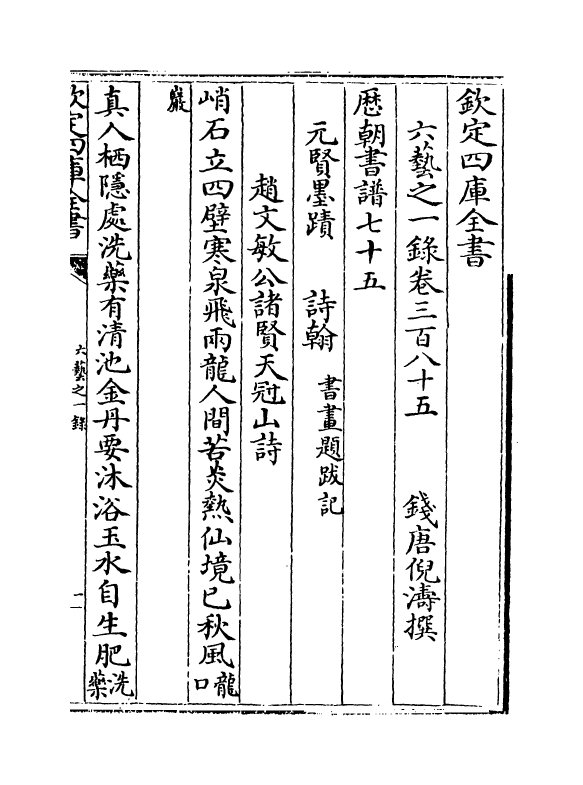 欽定四庫全書
六藝之一錄卷三百八十五　　錢唐倪濤撰
歴朝書譜七十五
元賢墨蹟　詩翰　書畫題跋記
趙文敏公諸賢天冠山詩
峭石立四壁寒泉飛兩龍人間苦炎熱仙境已秋風龍口
巖
真人栖隱處洗藥有清池金丹要沐浴玉水自生肥洗藥
欽定四庫全書
六藝之一錄